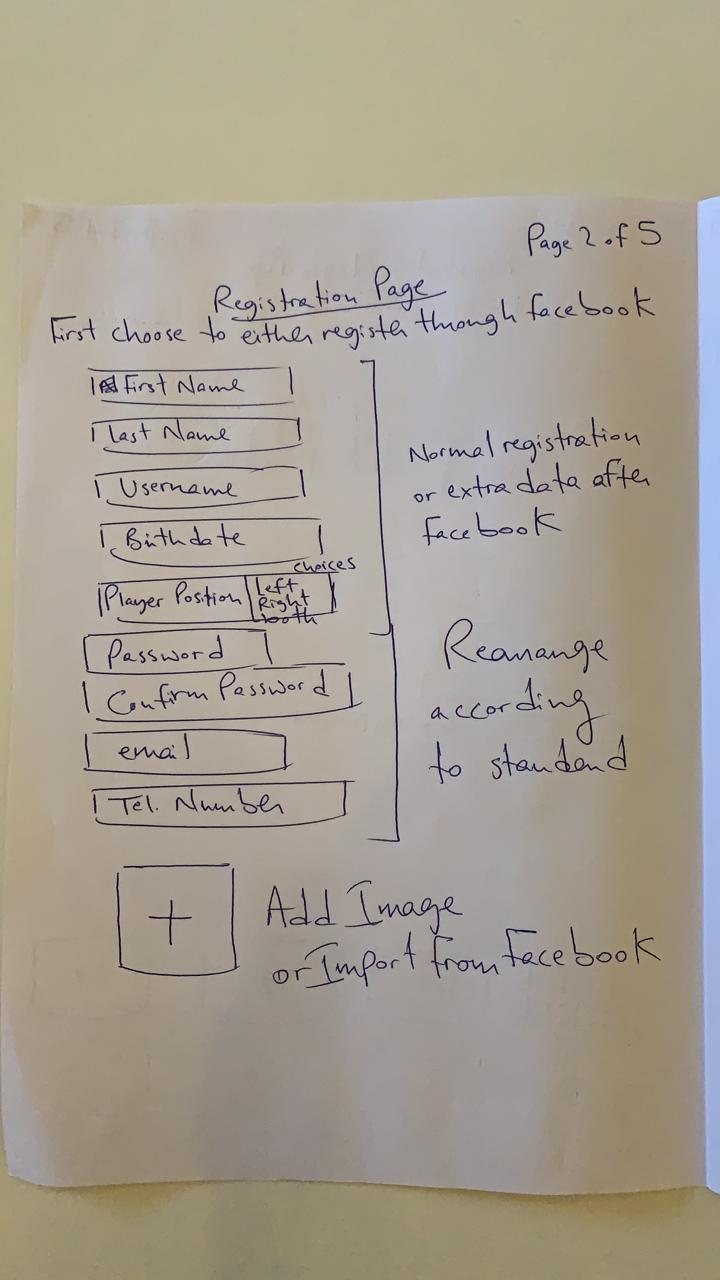 Page 2 of 5
Registration Page
First choose to either register through facebook
First Name
Last Name
Username
Birthdate
choices
Player Position
Left
Right
booth
Password
Confirm Password
email
Tel. Number
Normal registration
or extra data after
facebook
Rearrange
according
to standard
+
Add Image
or Import from Facebook